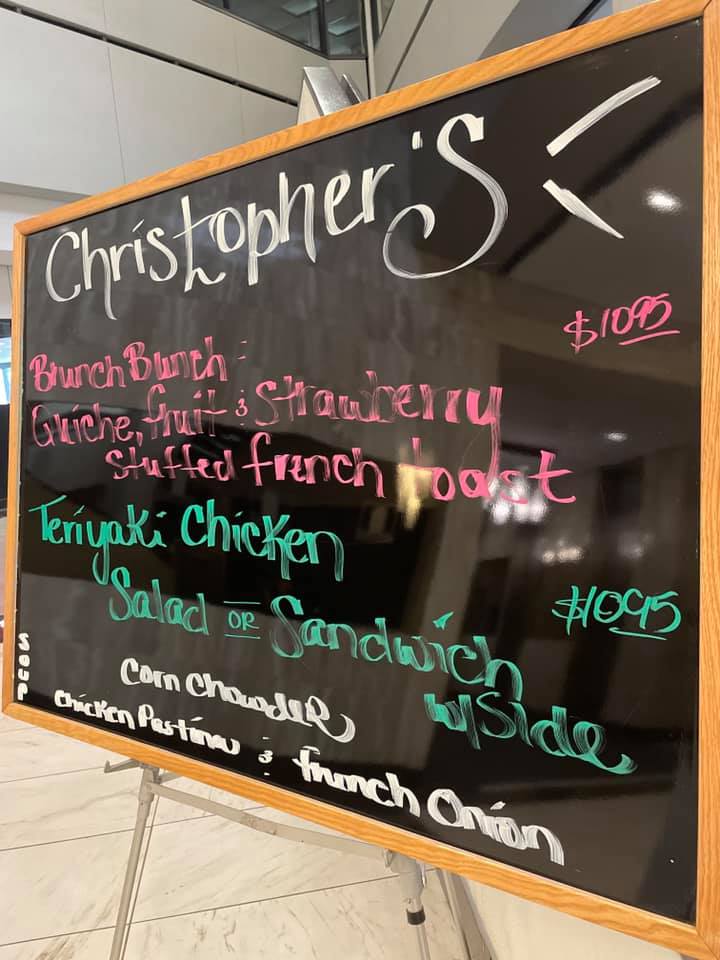 Christopher's
$1095
Brunch Bunch:
Quiche, fruit & Strawberry
Stuffed french toast
Teriyaki Chicken
Salad OR Sandwich
$1095
w/Side
SOUP
Corn Chowder
Chicken Pastina & French Onion